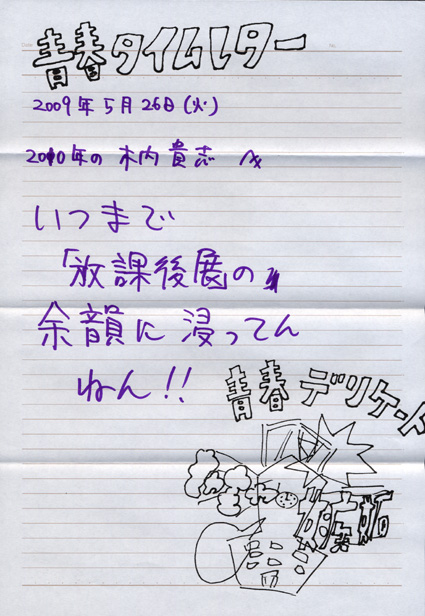 青春タイムレター
2009年5月26日(火)
2010年の 木内貴志 へ
いつまで
「放課後展」の
余韻に浸ってん
ねん!!
青春デリケート